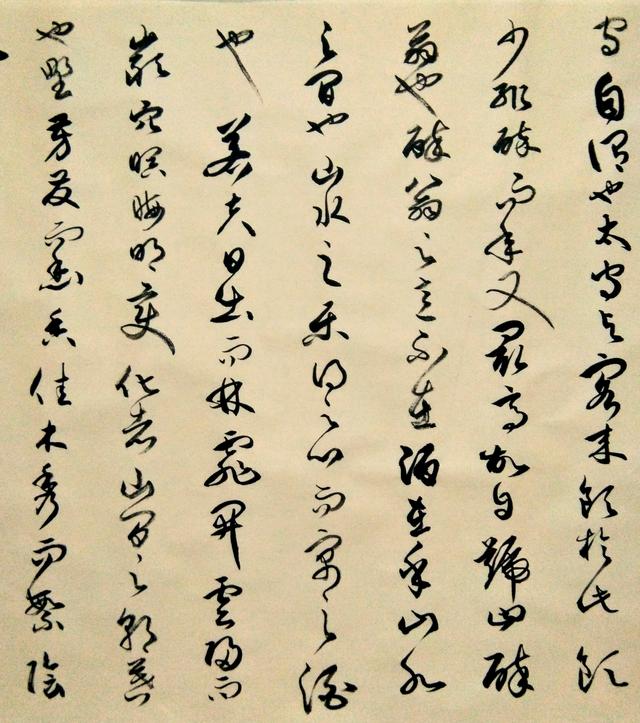 守自謂也太守与客来飲於此飲
少輒醉而年又最高故自號曰醉
翁也醉翁之意不在酒在乎山水
之間也山水之樂得之心而寓之酒
也若夫日出而林霏開雲歸而
巖穴暝晦明變化者山間之朝暮
也野芳發而幽香佳木秀而繁陰